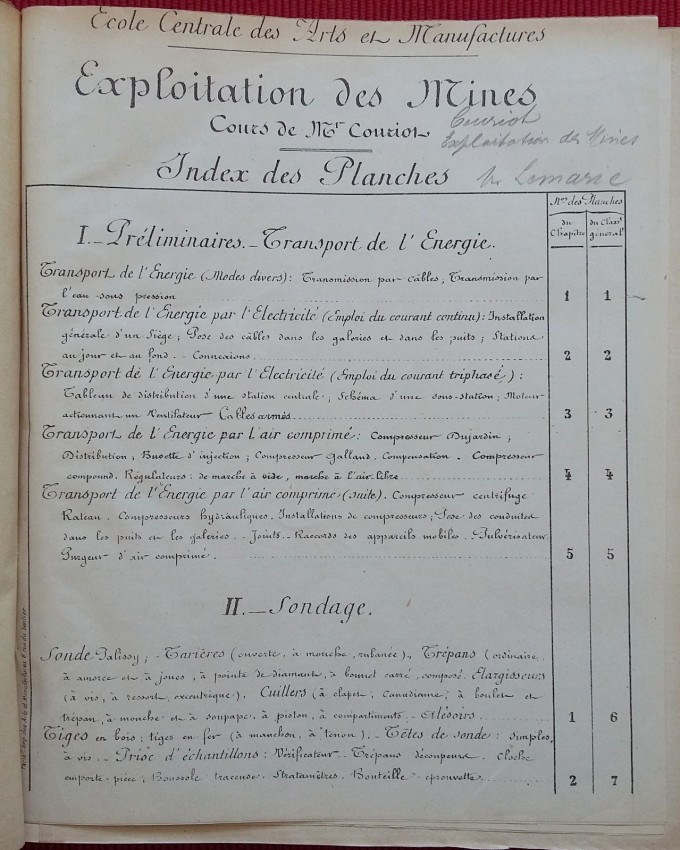 Ecole Centrale des Arts et Manufactures
Exploitation des Mines
Cours de Mr Couriot
Couriot
Exploitation des Mines
Index des Planches
Lemarie
Nos des Planches
du Chapitre
du Classt général
I._Préliminaires._Transport de l'Energie.
Transport de l'Energie (Modes divers): Transmission par câbles; Transmission par
l'eau sous pression 1 1
Transport de l'Energie par l'Electricité (Emploi du courant continu): Installation
générale d'un Siège; Pose des câbles dans les galeries et dans les puits; Stations
au jour et au fond._Connexions. 2 2
Transport de l'Energie par l'Electricité (Emploi du courant triphasé):
Tableau de distribution d'une station centrale; Schéma d'une sous-station; Moteur
actionnant un Ventilateur Cables armés 3 3
Transport de l'Energie par l'air comprimé: Compresseur Dujardin;
Distribution; Buvette d'injection; Compresseur Galland. Compensation. Compresseur
compound. Régulateurs: de marche à vide, marche à l'air libre 4 4
Transport de l'Energie par l'air comprimé (suite). Compresseur centrifuge
Rateau. Compresseurs hydrauliques. Installations de compresseurs; Pose des conduites
dans les puits et les galeries._Joints._Raccords des appareils mobiles._Pulvérisateur.
Purgeur d'air comprimé. 5 5
II._Sondage.
Sonde Palissy;_Tarières (ouverte, à mouche, rubanée)._Trépans (ordinaire,
à amorce et à joues, à pointe de diamant, à bonnet carré, composé. Elargisseurs
(à vis, à ressort, excentrique). Cuillers (à clapet; Canadienne; à boulet et
trépan, à mouche et à soupape, à piston, à compartiments._Alésoirs 1 6
Tiges en bois; tiges en fer (à manchon, à tenon)._Têtes de sonde: simples,
à vis._Prise d'échantillons: Vérificateur._Trépans découpeurs. Cloche
emporte-pièce; Boussole traceuse. Stratamètres. Bouteille éprouvette 2 7